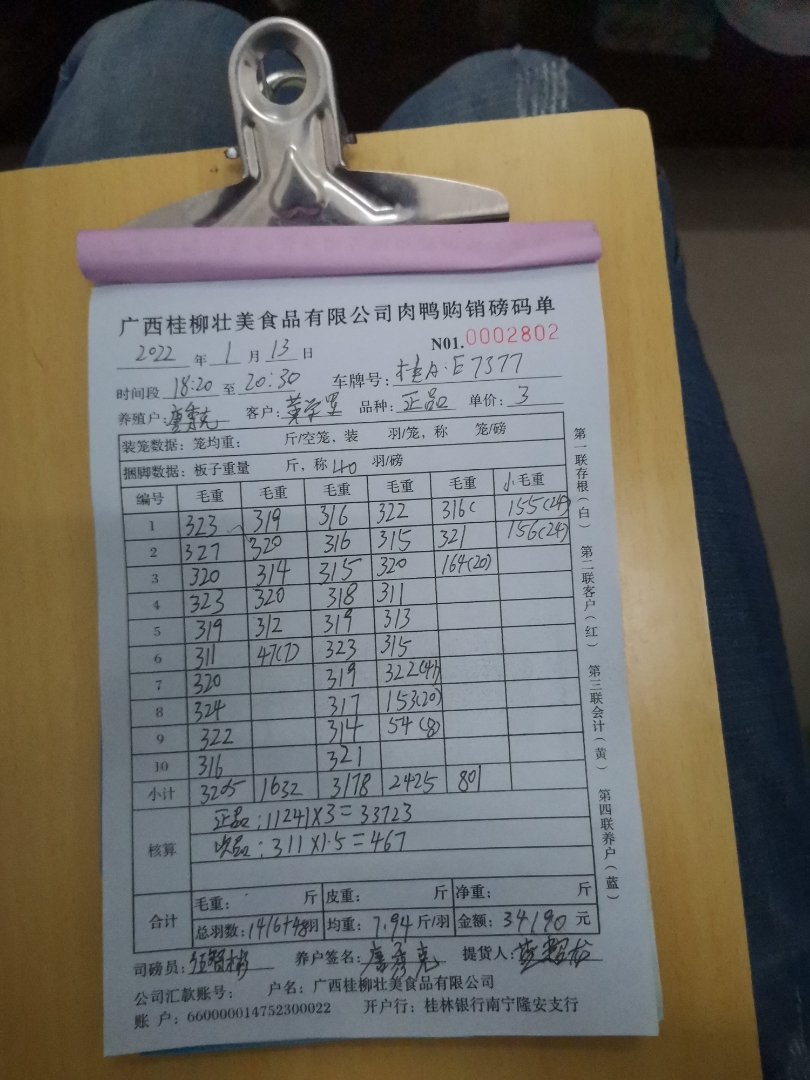 广西桂柳壮美食品有限公司肉鸭购销磅码单
NO1.0002802
2022 年 1 月 13 日
时间段 18:20 至 20:30 车牌号: 桂A·E7377
养殖户: 客户: 品种: 正品 单价: 3
装笼数据: 笼均重: 斤/空笼, 装 羽/笼, 称 笼/磅
捆脚数据: 板子重量 斤, 称 40 羽/磅
编号 毛重 毛重 毛重 毛重 毛重 小毛重
1 323 319 316 322 316 155(24)
2 327 320 316 315 321 156(24)
3 320 314 315 320 164(20)
4 323 320 318 311
5 319 312 319 313
6 311 47(7) 323 315
7 320 319 322(41)
8 324 317 153(20)
9 322 314 54(8)
10 316 321
小计 3205 1632 3178 2425 801
核算 正品:11241X3=33723
次品:311X1.5=467
合计 毛重: 斤 皮重: 斤 净重: 斤
总羽数:1416+48羽 均重: 7.94 斤/羽 金额: 34190 元
司磅员: 养户签名: 提货人:
公司汇款账号: 户名: 广西桂柳壮美食品有限公司
账 户: 660000014752300022 开户行: 桂林银行南宁隆安支行
第一联存根(白) 第二联客户(红) 第三联会计(黄) 第四联养户(蓝)